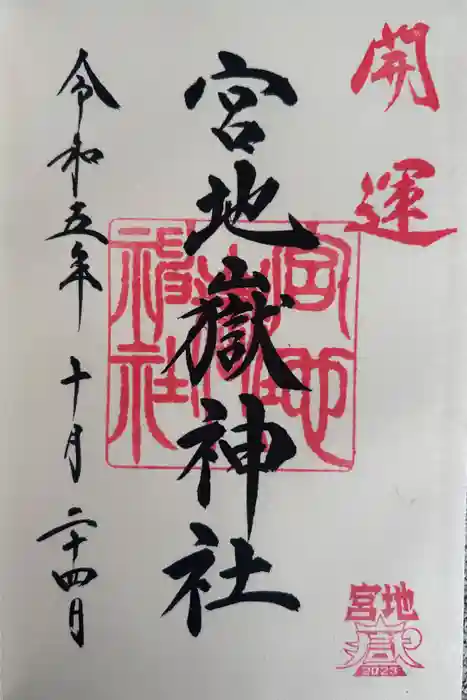 開運
宮地嶽神社
令和五年 十月 二十四日
宮地嶽神社
宮地
嶽
2023